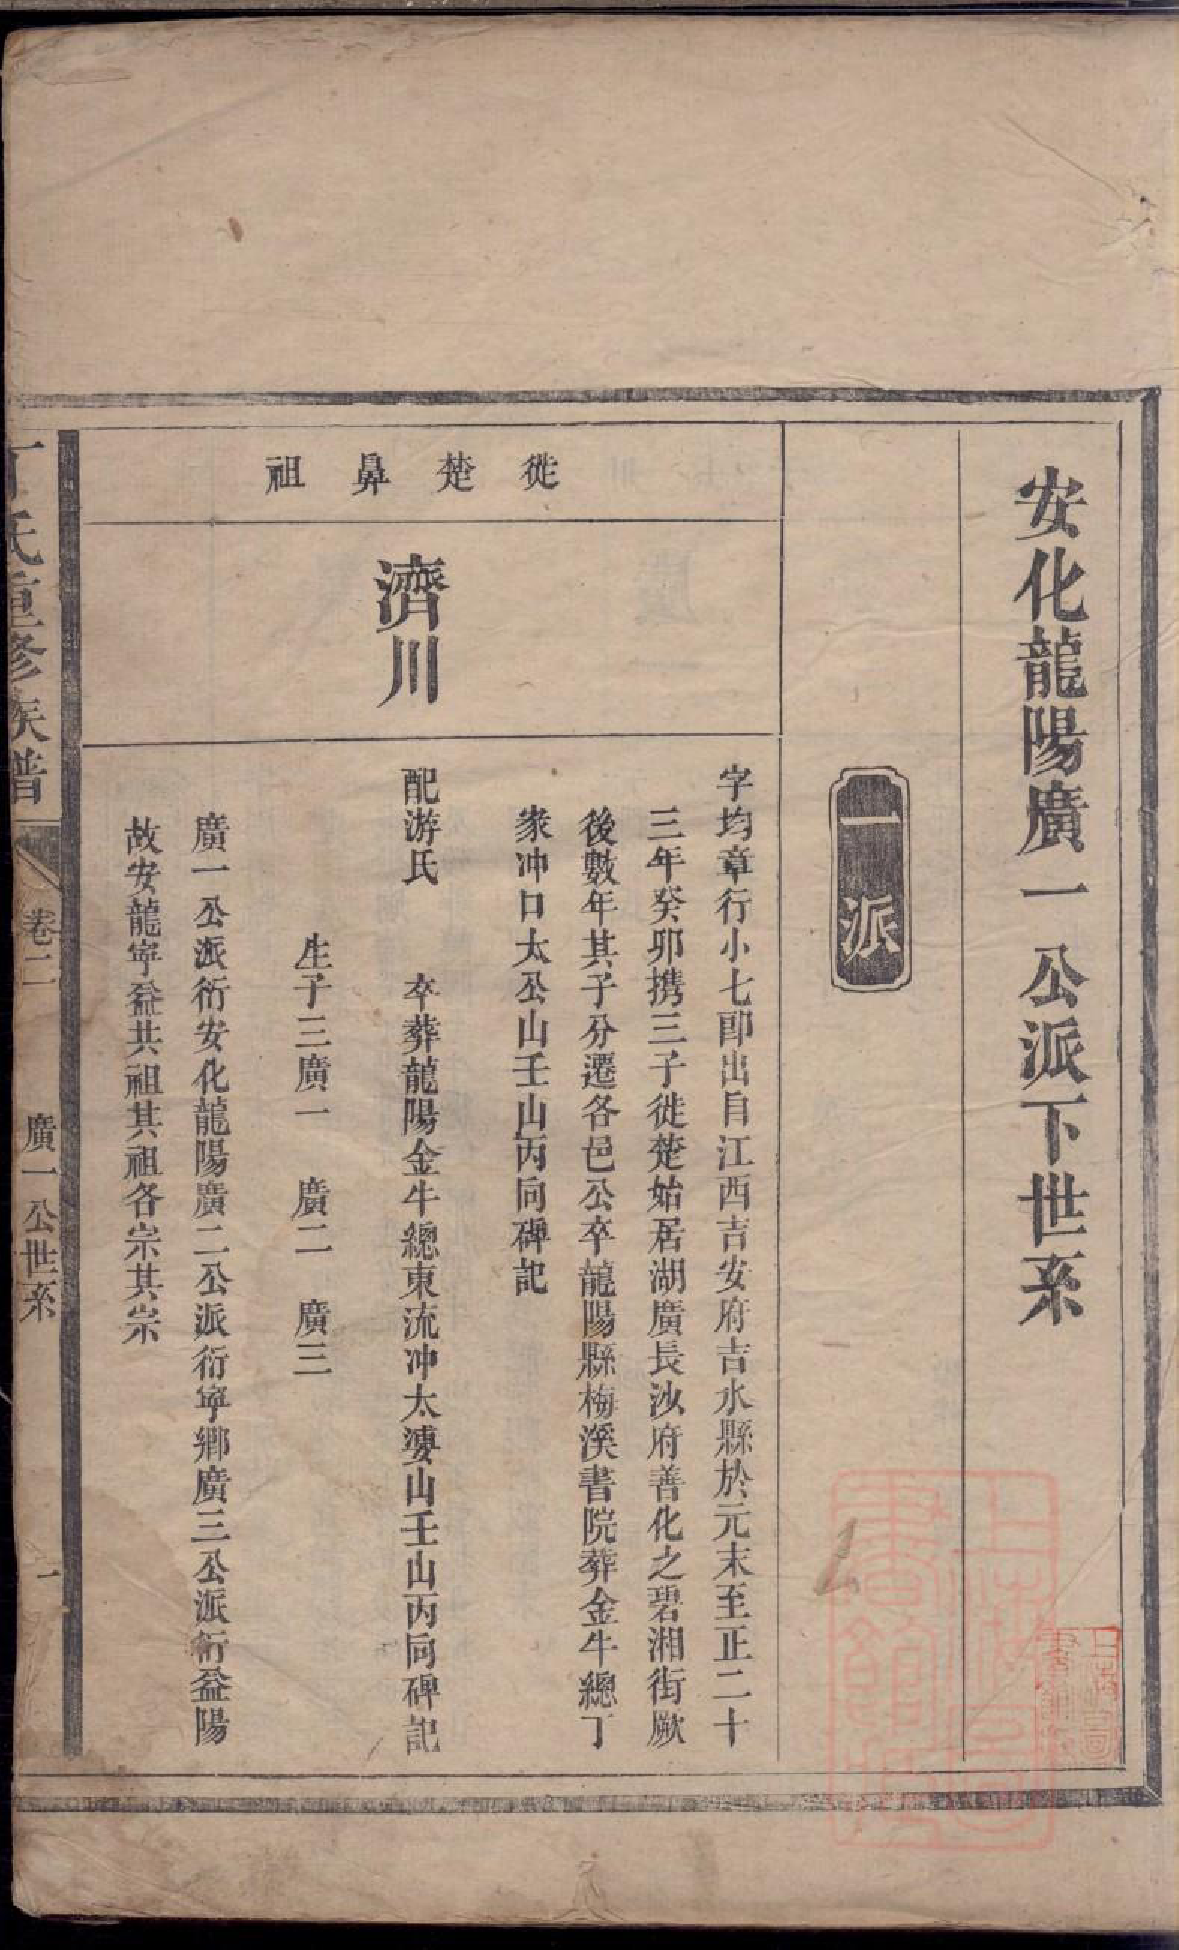 安化龍陽廣一公派下世系
一派
徙楚鼻祖
濟川
字均章行小七郎出自江西吉安府吉水縣於元末至正二十
三年癸卯携三子徙楚始居湖廣長沙府善化之碧湘街厥
後數年其子分遷各邑公卒龍陽縣梅溪書院葬金牛總丁
家冲口太公山壬山丙向碑記
配游氏 卒葬龍陽金牛總東流冲太婆山壬山丙向碑記
生子三廣一 廣二 廣三
廣一公派衍安化龍陽廣二公派衍寧鄉廣三公派衍益陽
故安龍寧益共祖其祖各宗其宗
丁氏重修族譜 卷二 廣一公世系 一
上海圖書館藏